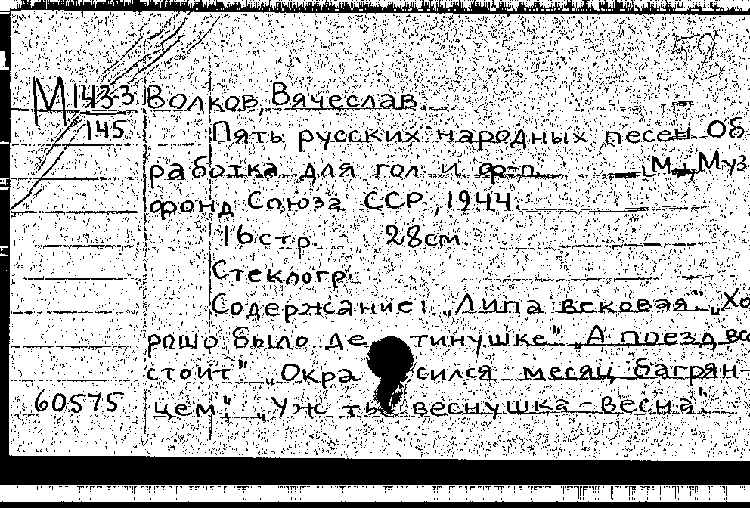 М 143-3
145
Волков, Вячеслав.
Пять русских народных песен. Об
работка для гол и ф-п. М., Муз
фонд Союза ССР, 1944.
16 стр. 28 см.
Стеклогр.
Содержание: „Липа вековая". „Хо
рошо было де тинушке". „А поезд вс
стоит". „Окра сился месяц багрян-
цем". „Уж ты веснушка-весна".
60575